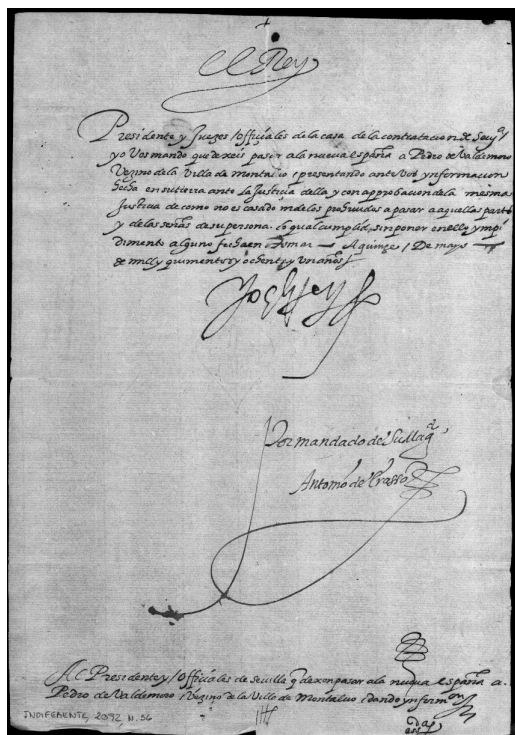 el Rey
Presidente y Juezes officiales de la casa de la contratacion de Seuª
yo Vos mando que dexeis pasar a la nueua españa a Pedro de Valdemoro
Vezino de la Villa de montaluo / presentando ante Vos ynformacion
hecha en su tierra ante la Justicia della y con approbacion de la misma
Justicia de como no es casado ni de los prohiuidos a pasar a aquellas partes
y de las señas de su persona. lo qual cumplid, sin poner en ello ympe
dimento alguno fecha en Tomar A quinze / De mayo
de mill y quinientos y ochenta y un años /
Yo el Rey
Por mandado de Su Magd,
Antonio de Erasso
Al Presidente y / officiales de Seuilla q dexen pasar a la nueua españa a.
Pedro de Valdemoro / Vezino de la Villa de Montaluo / dando ynformon
INDIFERENTE, 2092, N. 56